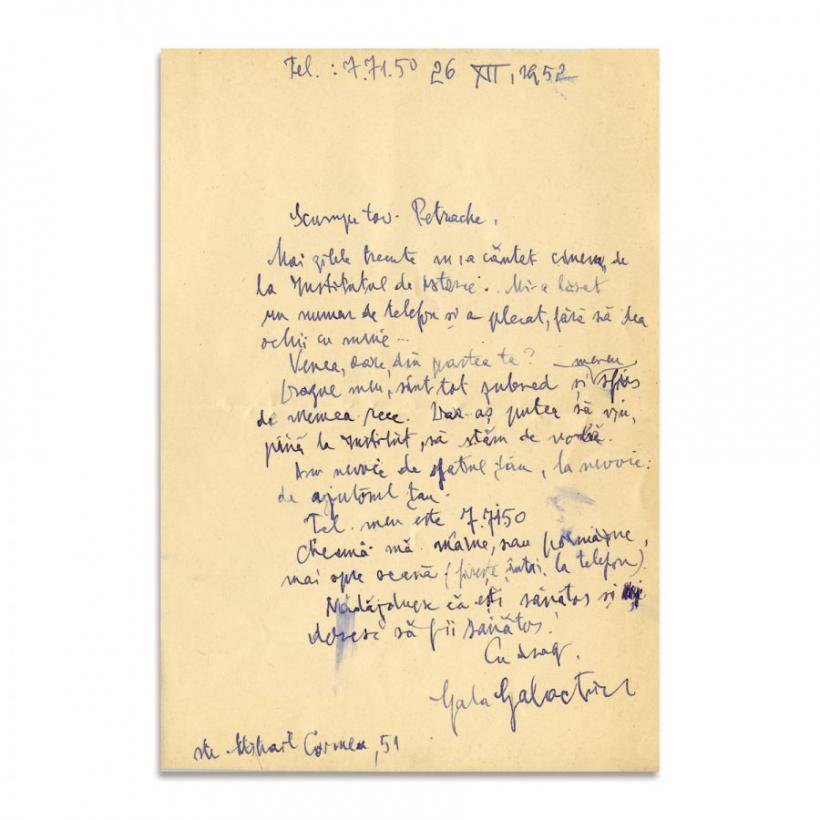 Tel. : 7.71.50 26 XII, 1952
Scumpe tov. Petrache,
Mai zilele trecute m-a căutat cineva, de
la Institutul de Istorie.. Mi-a lăsat
un numar de telefon și a plecat, fără să dea
ochii cu mine...
Venea, oare, din partea ta? mereu
Dragul meu, sînt tot șubred și
de vremea rece. Dar aș putea să viu,
până la Institut, să stăm de vorbă.
Am nevoie de sfatul tău, la nevoie:
de ajutorul tau.
Tel. meu este 7.7150
Cheamă-mă mâine, sau poimâine,
mai spre seară (firește, întîi, la telefon)
Nădăjduesc că ești sănătos și îți
doresc să fii sănătos!
Cu drag,
Gala Galaction
str. Mihail Cornea, 51